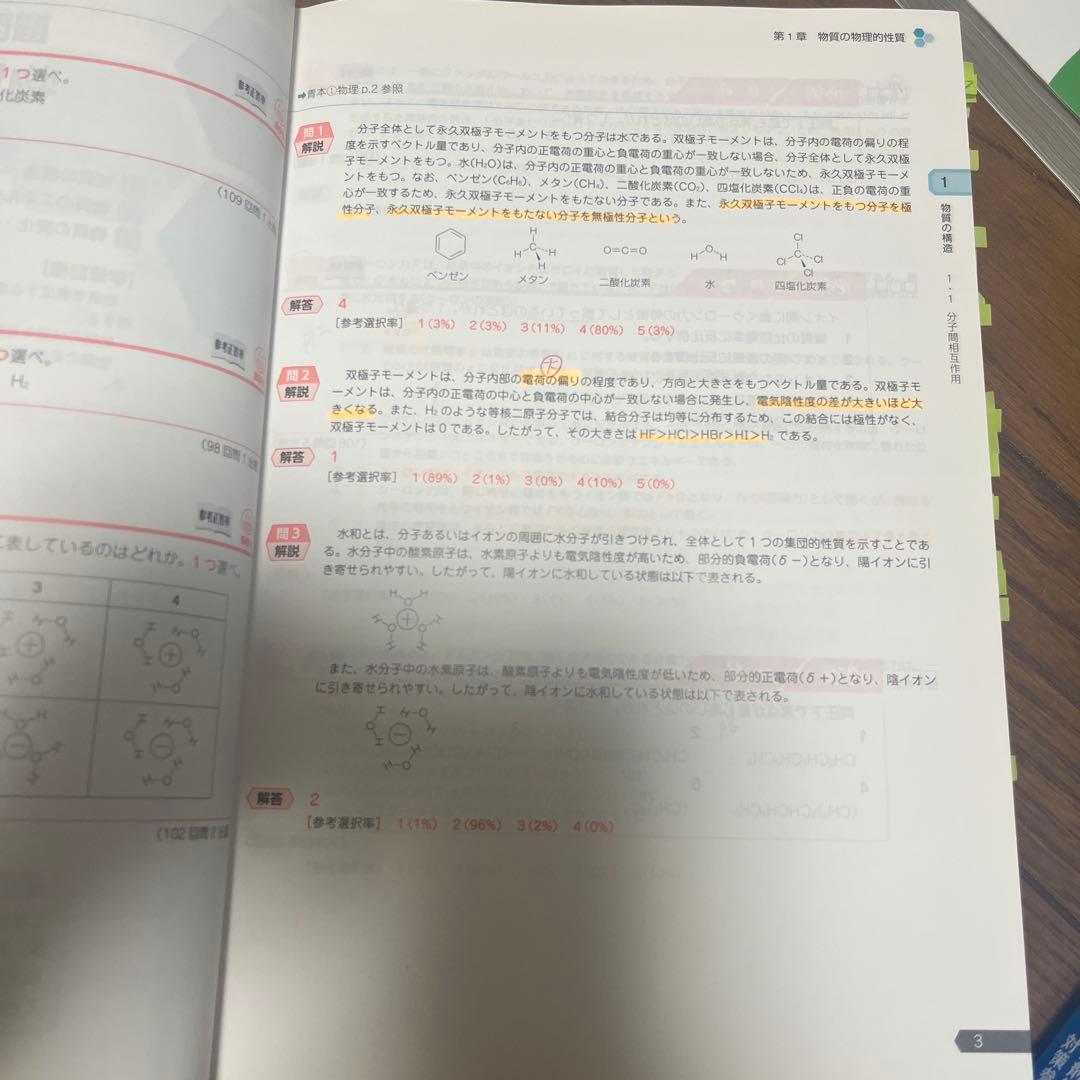 1つ選べ。
化炭素
参考正答率
(109回問1
つ選べ。
H₂
参考正答率
(98回問1出
参考正答率
に表しているのはどれか。1つ選べ。
3 4
(102回問2出
第1章 物質の物理的性質
➡青本①物理 p.2 参照
問1
解説
分子全体として永久双極子モーメントをもつ分子は水である。双極子モーメントは、分子内の電荷の偏りの程
度を示すベクトル量であり、分子内の正電荷の重心と負電荷の重心が一致しない場合、分子全体として永久双極
子モーメントをもつ。水(H₂O)は、分子内の正電荷の重心と負電荷の重心が一致しないため、永久双極子モーメ
ントをもつ。なお、ベンゼン(C₆H₆)、メタン(CH₄)、二酸化炭素(CO₂)、四塩化炭素(CCl₄)は、正負の電荷の重
心が一致するため、永久双極子モーメントをもたない分子である。また、永久双極子モーメントをもつ分子を極
性分子、永久双極子モーメントをもたない分子を無極性分子という。
ベンゼン メタン 二酸化炭素 水 四塩化炭素
解答 4
[参考選択率] 1(3%) 2(3%) 3(11%) 4(80%) 5(3%)
問2
解説
双極子モーメントは、分子内部の電荷の偏りの程度であり、方向と大きさをもつベクトル量である。双極子モ
ーメントは、分子内の正電荷の中心と負電荷の中心が一致しない場合に発生し、電気陰性度の差が大きいほど大
きくなる。また、H₂のような等核二原子分子では、結合分子は均等に分布するため、この結合には極性がなく、
双極子モーメントは0である。したがって、その大きさはHF>HCl>HBr>HI>H₂である。
解答 1
[参考選択率] 1(89%) 2(1%) 3(0%) 4(10%) 5(0%)
問3
解説
水和とは、分子あるいはイオンの周囲に水分子が引きつけられ、全体として1つの集団的性質を示すことであ
る。水分子中の酸素原子は、水素原子よりも電気陰性度が高いため、部分的負電荷(δ−)となり、陽イオンに引
き寄せられやすい。したがって、陽イオンに水和している状態は以下で表される。
また、水分子中の水素原子は、酸素原子よりも電気陰性度が低いため、部分的正電荷(δ+)となり、陰イオン
に引き寄せられやすい。したがって、陰イオンに水和している状態は以下で表される。
解答 2
[参考選択率] 1(1%) 2(96%) 3(2%) 4(0%)
1
物質の構造 1・1 分子間相互作用
3